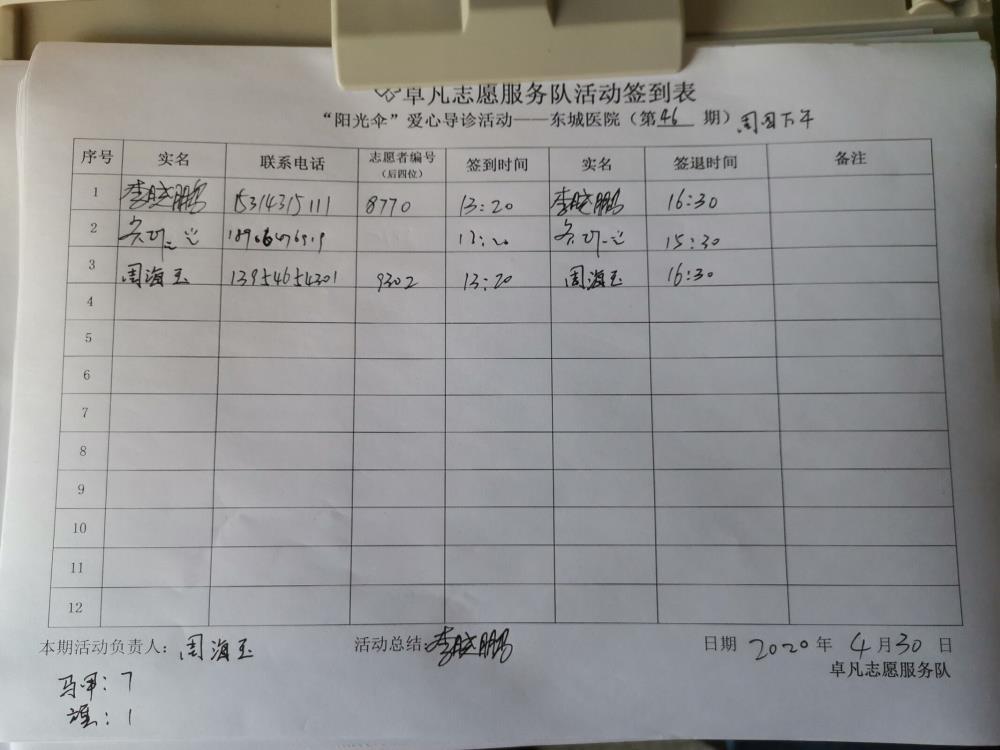 卓凡志愿服务队活动签到表
“阳光伞”爱心导诊活动——东城医院（第46期）周四下午
序号 实名 联系电话 志愿者编号（后四位） 签到时间 实名 签退时间 备注
1 李晓鹏 15314315111 8770 13:20 李晓鹏 16:30
2 13:20 15:30
3 周海玉 13954654301 9302 13:20 周海玉 16:30
4
5
6
7
8
9
10
11
12
本期活动负责人：周海玉 活动总结：李晓鹏 日期 2020年4月30日
卓凡志愿服务队
马甲：7
：1